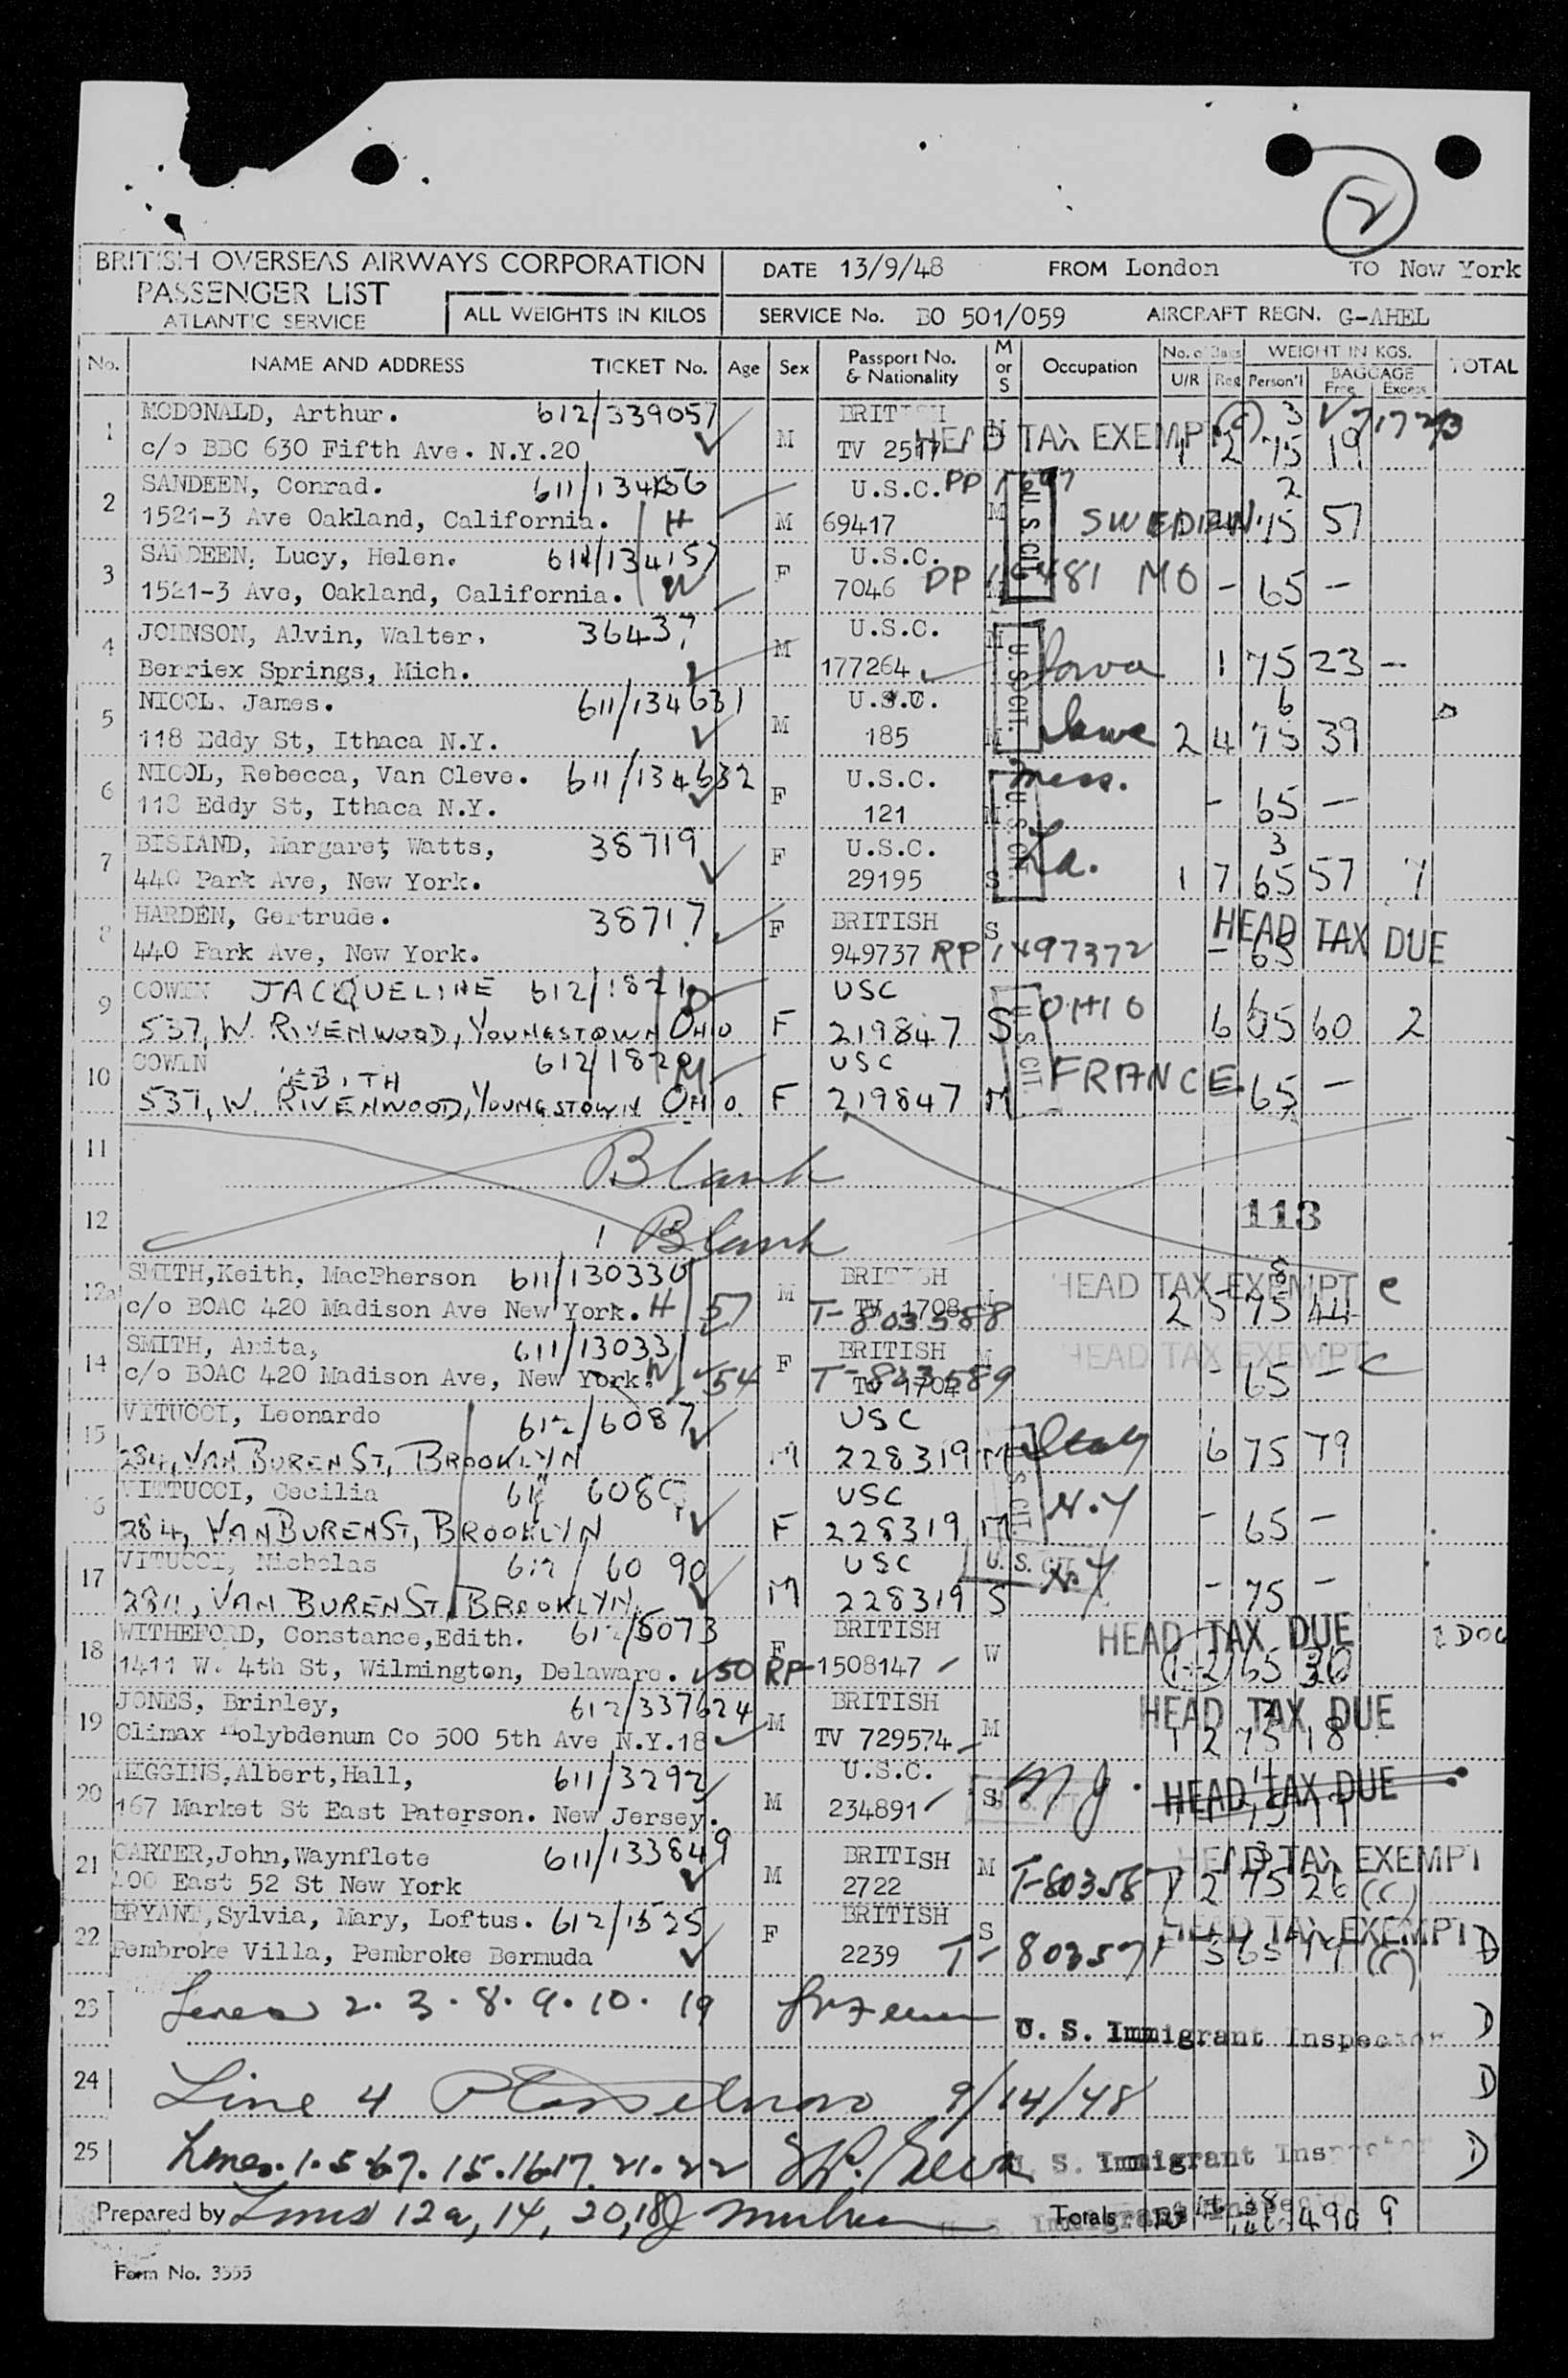 2
BRITISH OVERSEAS AIRWAYS CORPORATION
PASSENGER LIST
ATLANTIC SERVICE
ALL WEIGHTS IN KILOS
DATE 13/9/48 FROM London TO New York
SERVICE No. BO 501/059 AIRCRAFT REGN. G-AHEL
No. NAME AND ADDRESS TICKET No. Age Sex Passport No. & Nationality M or S Occupation No. of Bags U/R Reg WEIGHT IN KGS. Person'l BAGGAGE Free Excess TOTAL
1 MCDONALD, Arthur. 612/339057 BRITISH 3
c/o BBC 630 Fifth Ave. N.Y.20 M TV 2517 HEAD TAX EXEMPT 1 2 75 19
2 SANDEEN, Conrad. U.S.C. PP 2
1521-3 Ave Oakland, California. H M 69417 M U.S. CIT. SWEDEN 75 57
3 SANDEEN, Lucy, Helen. 611/134157 U.S.C.
1521-3 Ave, Oakland, California. W F 7046 MO - 65 -
4 JOHNSON, Alvin, Walter. 36437 U.S.C.
Berriex Springs, Mich. M 177264 M U.S. CIT. Iowa 1 75 23 -
5 NICOL, James. 611/134631 U.S.C. 6
118 Eddy St, Ithaca N.Y. M 185 M 2 4 75 39
6 NICOL, Rebecca, Van Cleve. 611/134632 U.S.C. Mess.
118 Eddy St, Ithaca N.Y. F 121 M U.S. CIT. - 65 -
7 BISLAND, Margaret, Watts, 38719 U.S.C. 3
440 Park Ave, New York. F 29195 S La. 1 7 65 57 7
8 HARDEN, Gertrude. 38717 BRITISH HEAD TAX DUE
440 Park Ave, New York. F 949737 S RP 1497372 - 65
9 COWIN JACQUELINE 612/1821 USC OHIO
537, W. RIVENWOOD, YOUNGSTOWN OHIO F 219847 S U.S. CIT. 6 65 60 2
10 COWIN EDITH 612/1820 USC FRANCE
537, W. RIVENWOOD, YOUNGSTOWN OHIO F 219847 M 65 -
11 Blank
12 Blank 113
12a SMITH, Keith, MacPherson 611/130330 BRITISH HEAD TAX EXEMPT 8 c
c/o BOAC 420 Madison Ave New York. H 57 M TV 1708 T-803588 2 5 75 44
14 SMITH, Anita, 611/13033 BRITISH M HEAD TAX EXEMPT c
c/o BOAC 420 Madison Ave, New York. W 54 F TV 1704 T-803589 - 65 -
15 VITUCCI, Leonardo 612/6087 USC Italy
284, VAN BUREN ST, BROOKLYN M 228319 M 6 75 79
16 VITTUCCI, Cecilia USC N.Y
284, VAN BUREN ST, BROOKLYN F 228319 M U.S. CIT. - 65 -
17 VITUCCI, Nicholas 612/60 90 USC U.S. CIT. N.Y
284, VAN BUREN ST, BROOKLYN M 228319 S - 75 -
18 WITHEFORD, Constance, Edith. 612/5073 BRITISH HEAD TAX DUE
1411 W. 4th St, Wilmington, Delaware. 50 F RP 1508147 W 1 2 65 30
19 JONES, Brinley, 612/337624 BRITISH HEAD TAX DUE
Climax Molybdenum Co 500 5th Ave N.Y.18 M TV 729574 M 1 2 75 18
20 HIGGINS, Albert, Hall, 611/3292 U.S.C. NJ. HEAD TAX DUE
167 Market St East Paterson. New Jersey. M 234891 S
21 CARTER, John, Waynflete 611/133849 BRITISH HEAD TAX EXEMPT 3
400 East 52 St New York M 2722 M T-80358 2 75 26 (C)
22 BRYANT, Sylvia, Mary, Loftus. 612/1525 BRITISH HEAD TAX EXEMPT
Pembroke Villa, Pembroke Bermuda F 2239 S T-80357 5 65 19 (C) D
23 Lines 2. 3. 8. 9. 10. 19 U. S. Immigrant Inspector D
24 Line 4 9/14/48 D
25 Lines. 1. 5 6 7. 15. 16 17. 21. 22 U. S. Immigrant Inspector D
Prepared by Lines 12a, 14, 20, 18 U. S. Immigrant Inspector Totals 490 9
Form No. 3555